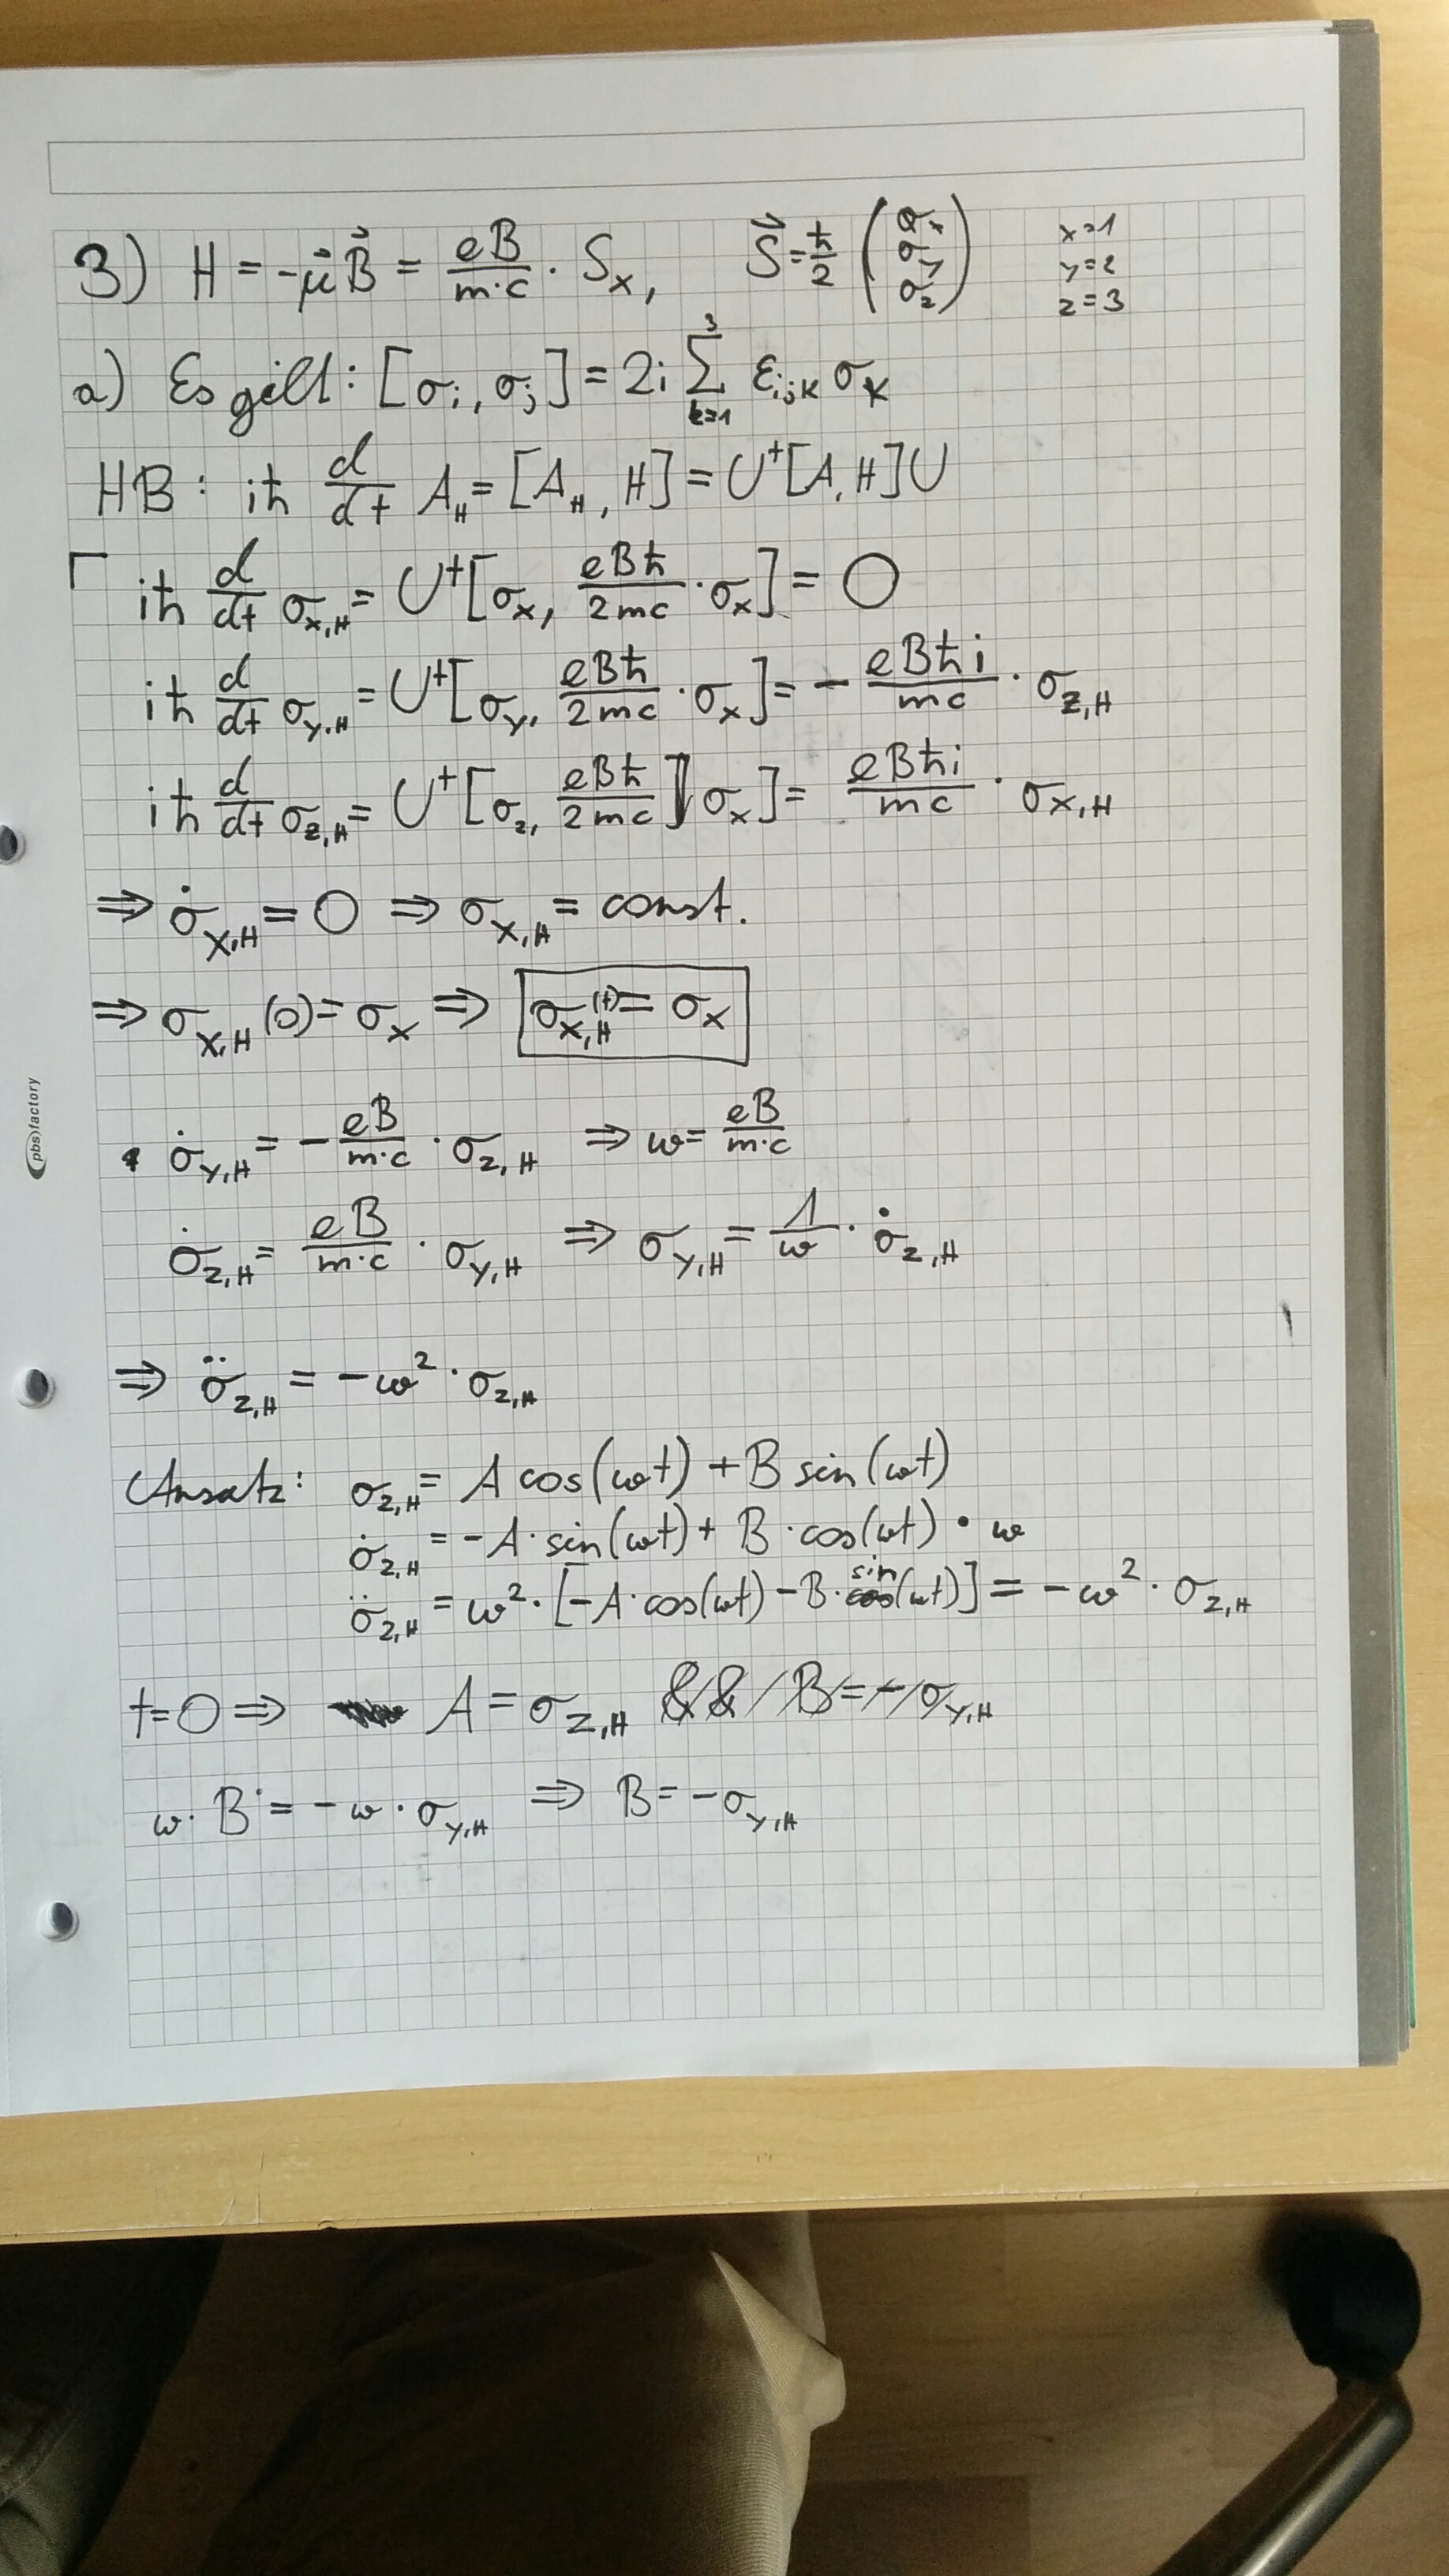 3) H = -μ⃗ B⃗ = eB/m·c · Sₓ, S⃗ = ħ/2 (σₓ σ_y σ_z) x=1 y=2 z=3
a) Es gilt: [σᵢ, σⱼ] = 2i Σ_{k=1}^{3} ε_{ijk} σ_k
HB: iħ d/dt A_H = [A_H, H] = U⁺[A, H]U
iħ d/dt σ_{x,H} = U⁺[σₓ, eBħ/2mc · σₓ] = 0
iħ d/dt σ_{y,H} = U⁺[σ_y, eBħ/2mc · σₓ] = - eBħi/mc · σ_{z,H}
iħ d/dt σ_{z,H} = U⁺[σ_z, eBħ/2mc σₓ] = eBħi/mc · σ_{x,H}
⇒ σ̇_{x,H} = 0 ⇒ σ_{x,H} = const.
⇒ σ_{x,H}(0) = σₓ ⇒ σ_{x,H}(t) = σₓ
• σ̇_{y,H} = - eB/m·c · σ_{z,H} ⇒ ω = eB/m·c
σ̇_{z,H} = eB/m·c · σ_{y,H} ⇒ σ_{y,H} = 1/ω · σ̇_{z,H}
⇒ σ̈_{z,H} = -ω² · σ_{z,H}
Ansatz: σ_{z,H} = A cos(ωt) + B sin(ωt)
σ̇_{z,H} = -A · sin(ωt) + B · cos(ωt) · ω
σ̈_{z,H} = ω² · [-A · cos(ωt) - B · sin(ωt)] = -ω² · σ_{z,H}
t=0 ⇒ A = σ_{z,H} && B = -σ_{y,H}
ω · B = -ω · σ_{y,H} ⇒ B = -σ_{y,H}
pbs)factory